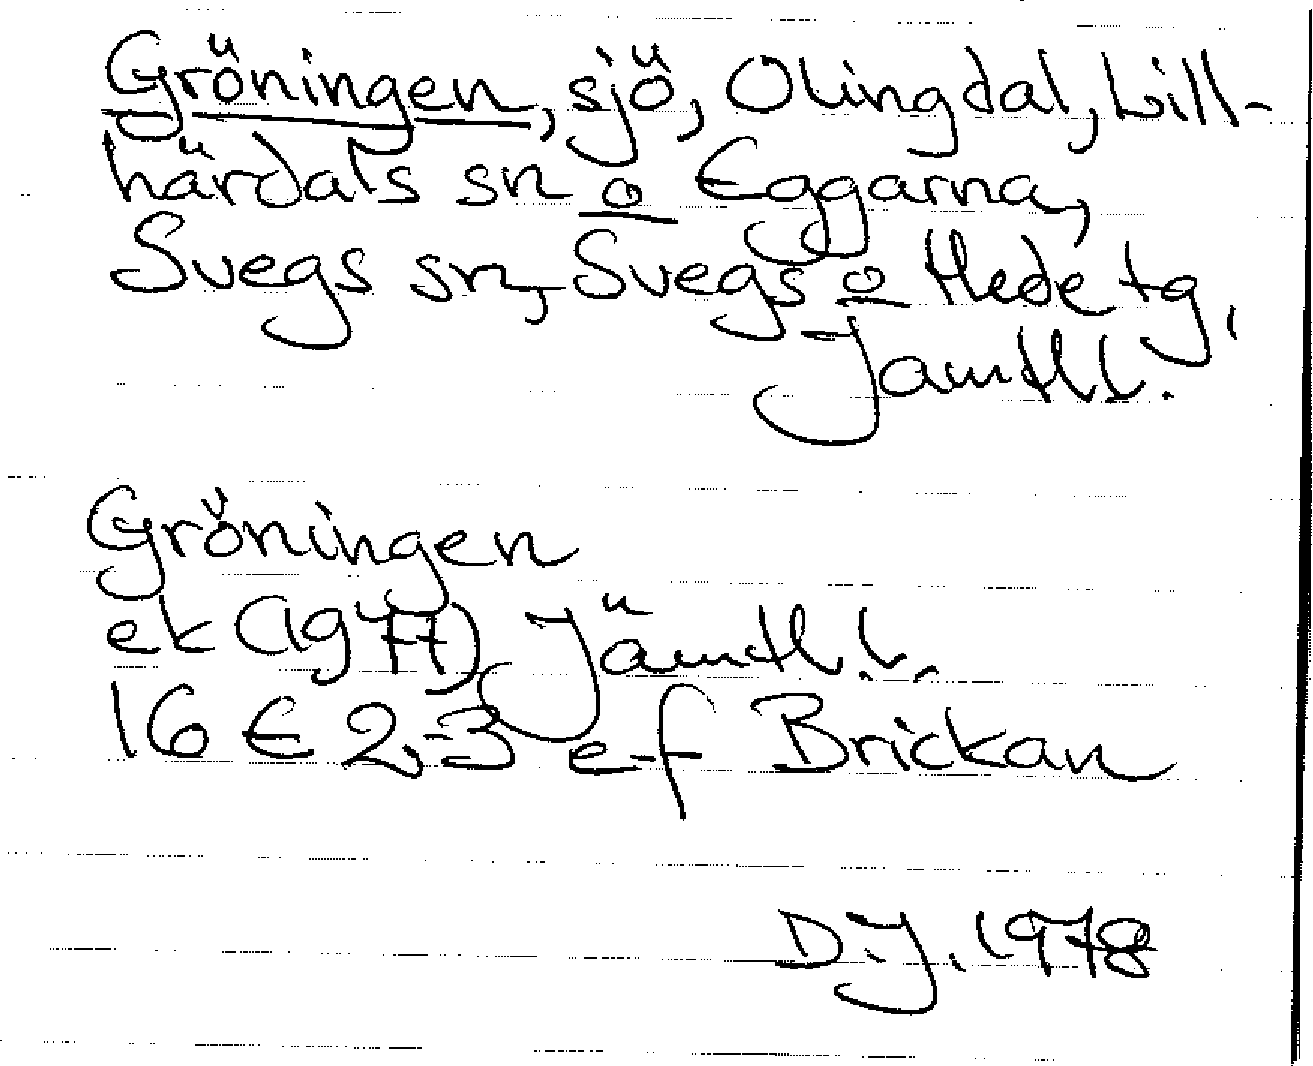 Gröningen, sjö, Olingdal, Lill-
härdals sn o Eggarna,
Svegs sn, Svegs o Hede tg,
Jämtl l.
Gröningen
ek (1977) Jämtl. l.
16 E 2-3 e-f Brickan
D.J. 1978